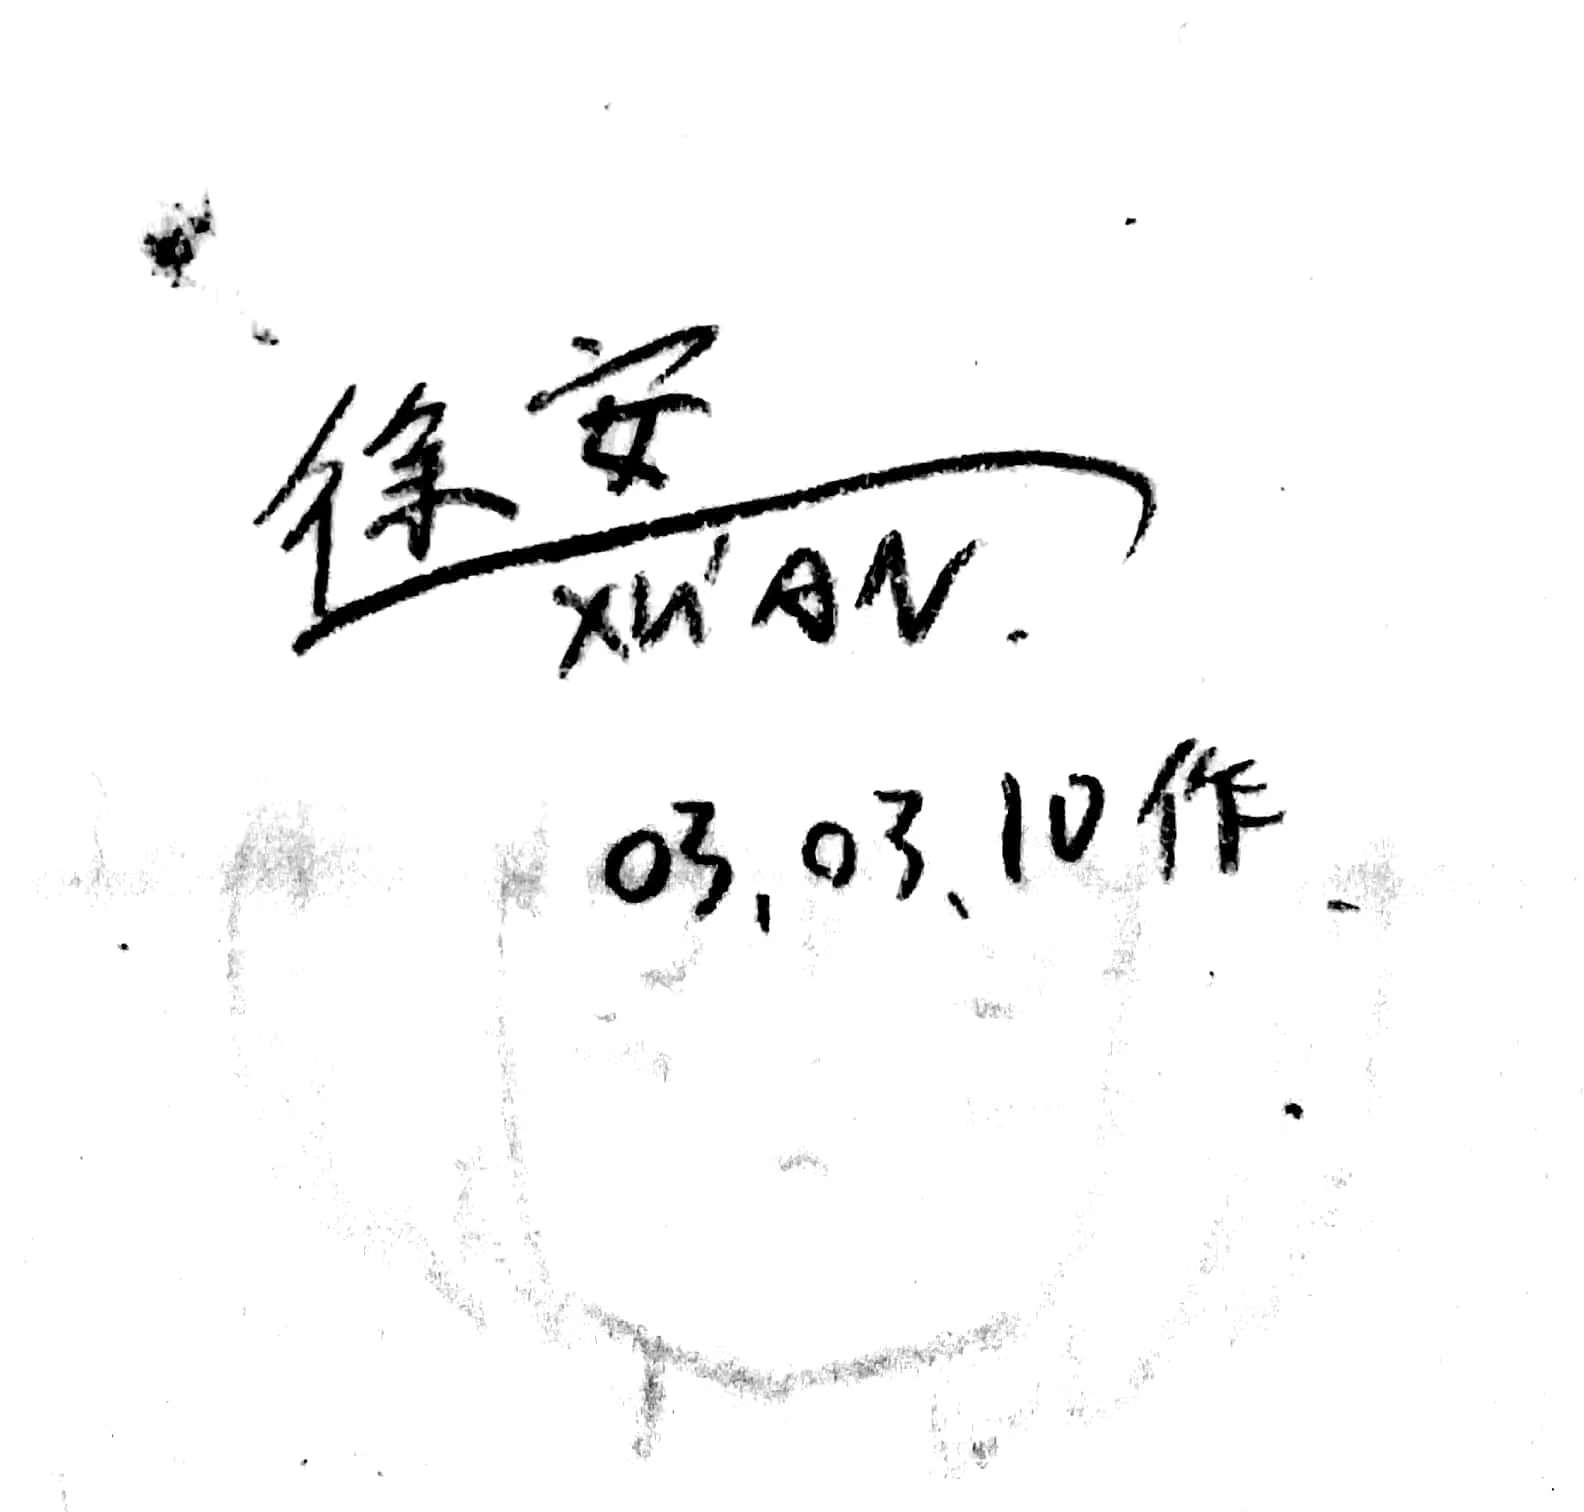 徐安
XU'AN.
03、03、10作